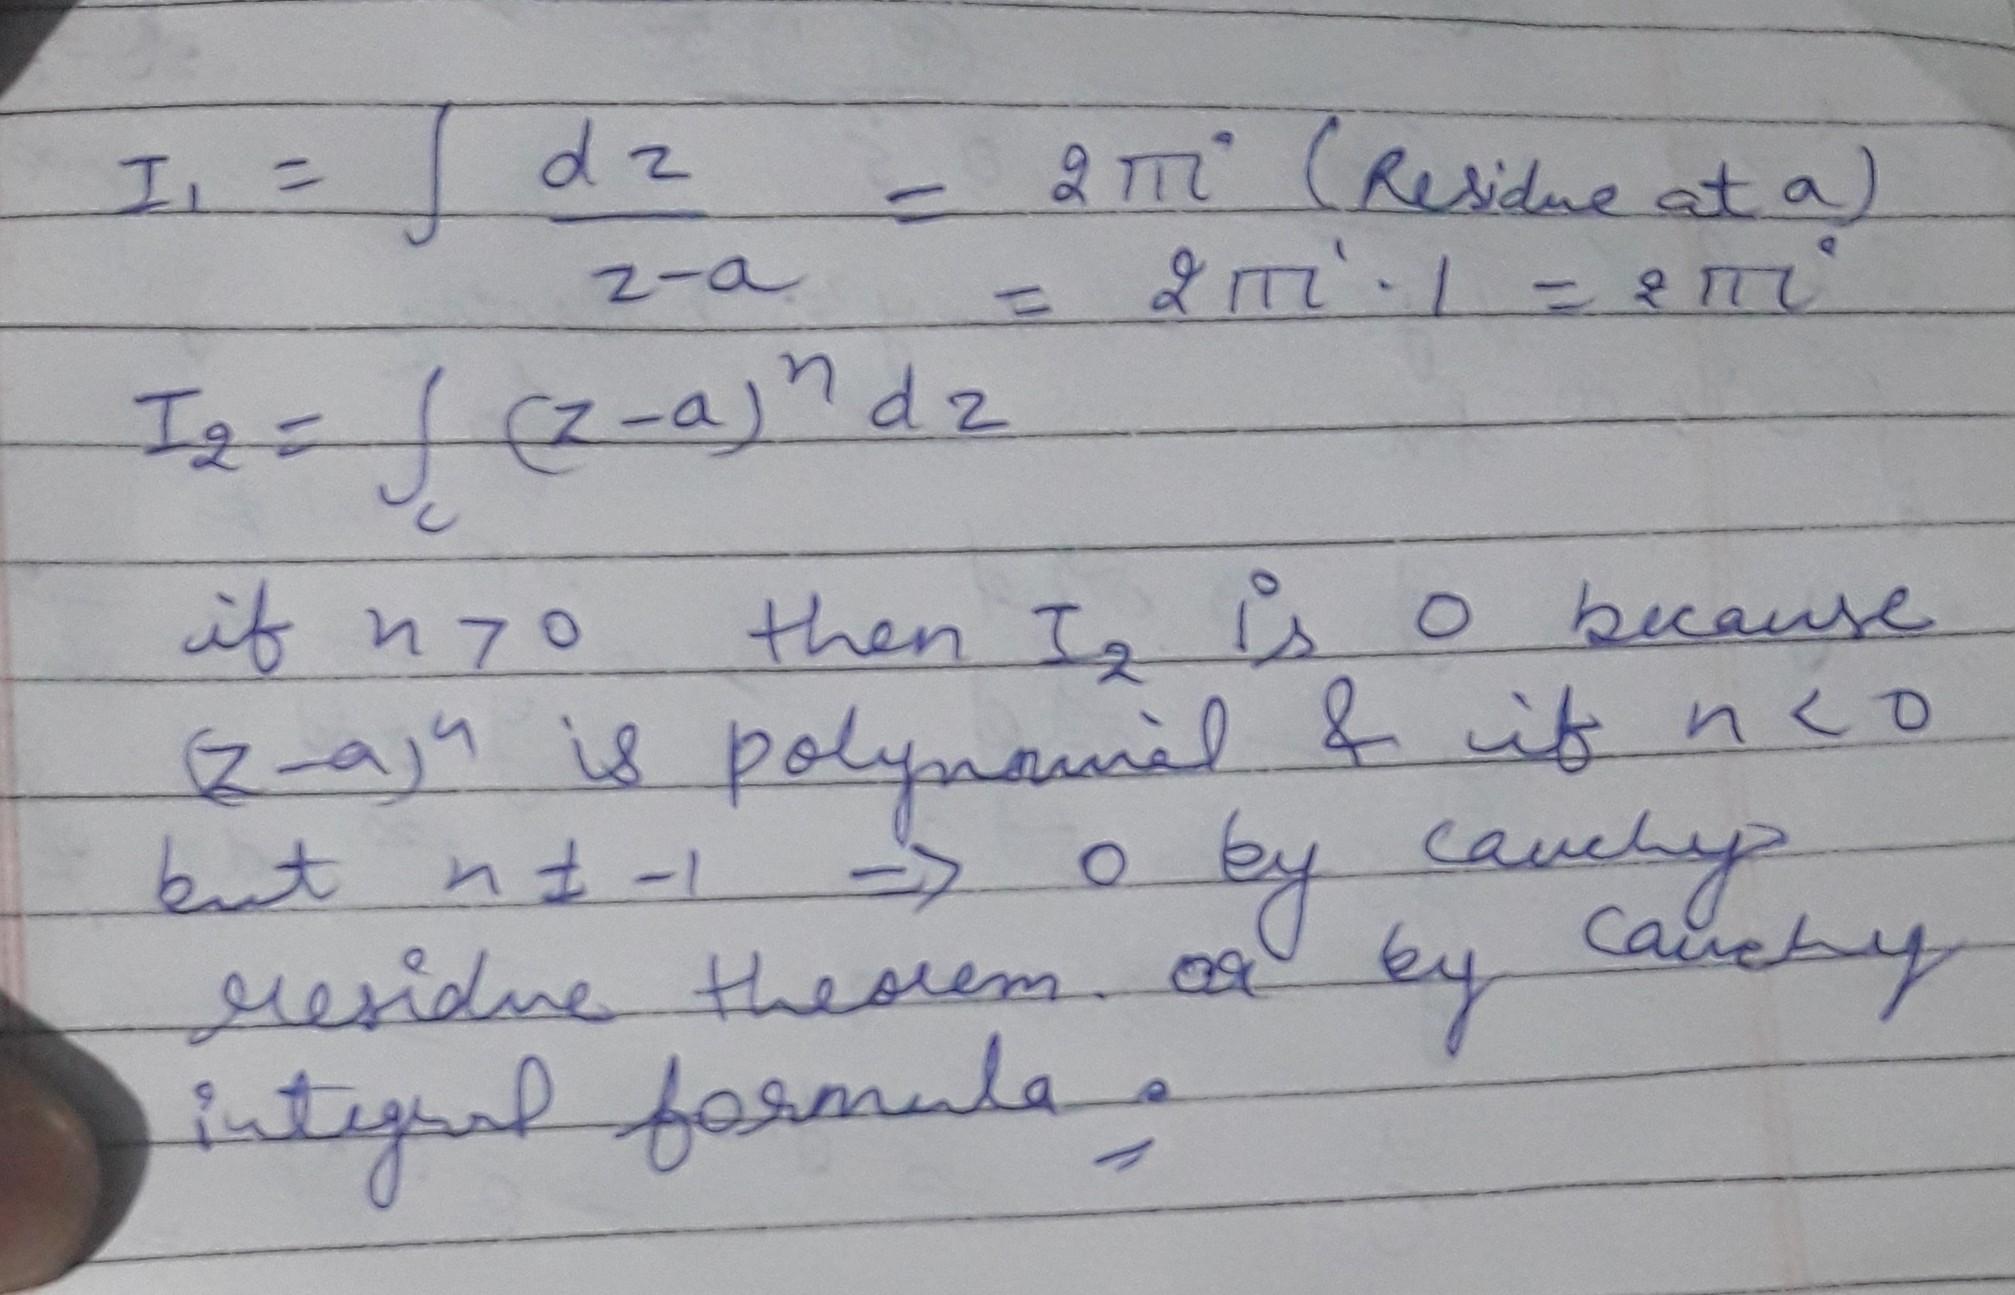 I₁ = ∫ dz / z-a = 2πi (Residue at a)
= 2πi · 1 = 2πi
I₂ = ∫_c (z-a)ⁿ dz
if n > 0 then I₂ is 0 because
(z-a)ⁿ is polynomial & if n < 0
but n ≠ -1 => 0 by cauchy
residue theorem. or by Cauchy
integral formula.